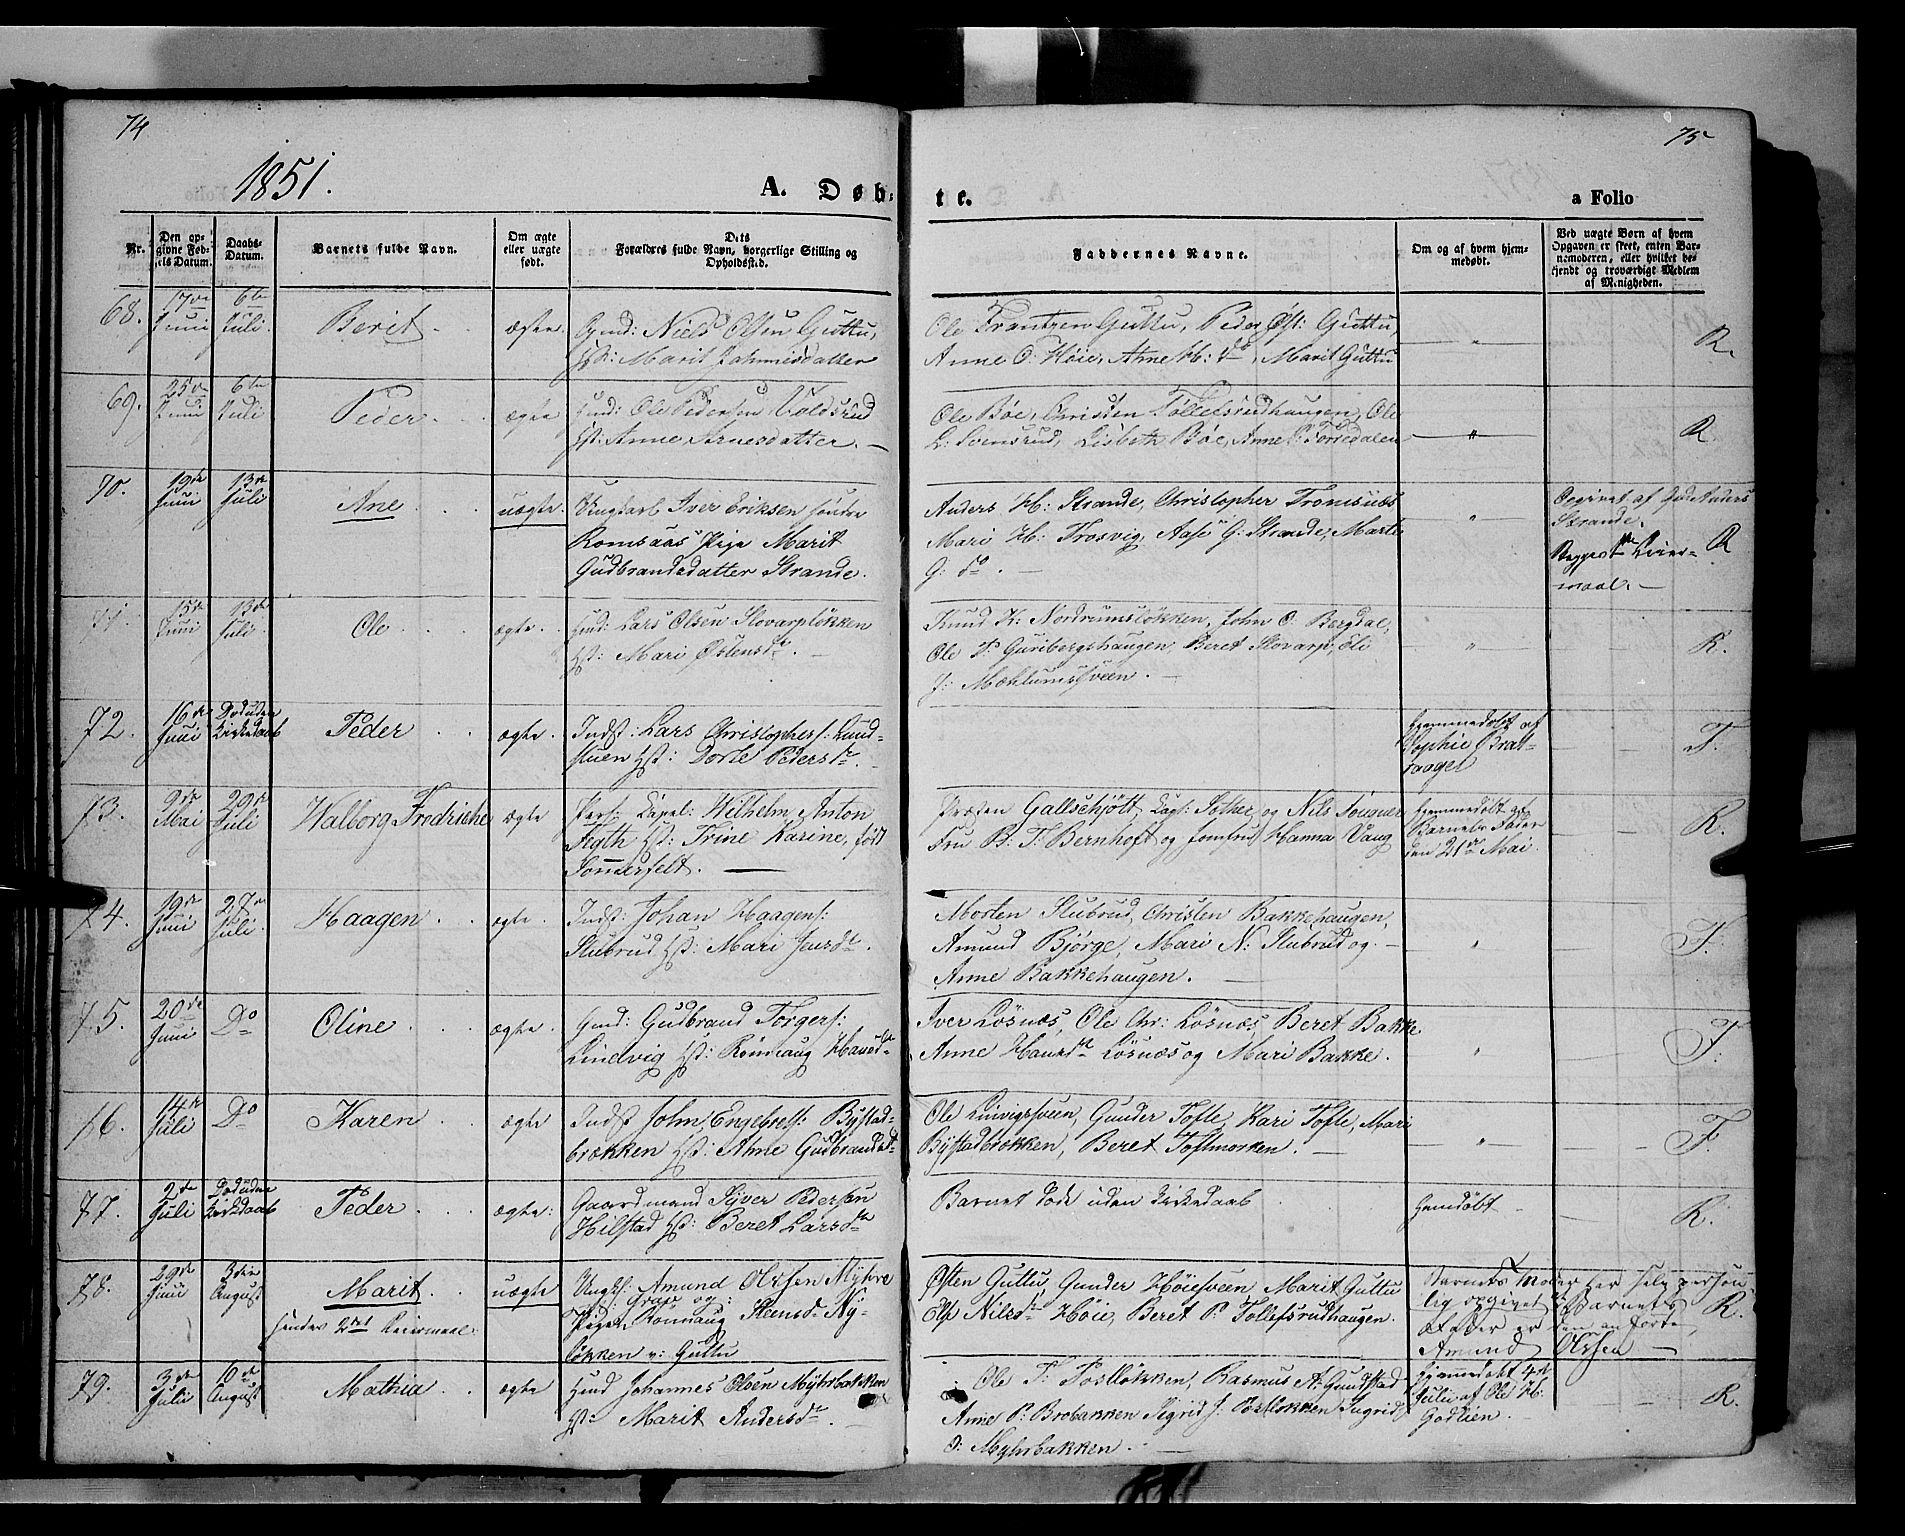 74
75
1851.
A. Døb-
te.
a Folio
Nr.
Den op-
givne Fød-
sels Datum.
Daabs-
Datum.
Barnets fulde Navn.
Om ægte
eller uægte
født.
Dets
Forældres fulde Navn, borgerlige Stilling og
Opholdssted.
Faddernes Navne.
Om og af hvem hjem-
medøbt.
Ved uægte Børn af hvem
Opgaven er skeet, enten Bar-
nemoderen, eller hvilket be-
kjendt og troværdigt Medlem
af Menigheden.
68.
17de
Juni
6te
Juli
Berit
ægte
Gmd: Niels Olsen Guttu,
Hst: Marit Johannesdatter
Ole Frantzen Guttu, Peder Øst: Guttu,
Anne O. Høie, Anne H: do, Marit Guttu
"
R.
69.
25de
Juni
6te
Juli
Peder
ægte
Hmd: Ole Pedersen Voldsrud
Hst: Anne Arnesdatter. —
Ole Bøe, Christen Tollefsrudhaugen, Ole
L: Svensrud, Lisbeth Bøe, Anne P: Forsedalen
"
R
70.
19de
Juni
13de
Juli
Ane
uægte.
Ungkarl Iver Eriksen søndre
Romsaas Pige Marit
Gudbrandsdatter Strande.
Anders H: Strande, Christopher Tromsnæs
Mari H: Trosvig, Aase G: Strande, Marte
G: do. —
"
Opgivet af Gmd Anders
Strande.
Begges 1ste Leier-
maal. —
R
71.
15de
Juni
13de
Juli.
Ole
ægte.
Hmd: Lars Olsen Slovarpløkken
Hst: Mari Østensdr. —
Knud K: Nordrumsløkken, John O. Bergdal,
Ole P: Guribergshaugen, Beret Slovarp, Eli
J: Mæhlumssveen. —
"
R.
72.
16de
Juni
Død uden
Kirkedaab
Peder
ægte.
Indst: Lars Christophers: Lund-
stuen Hst: Dorte Pedersdr.
Hjemmedøbt af
Sophie Brat-
aaget
F.
73.
9de
Mai
29de
Juli
Walborg Fredriche
ægte
Pers: Capel: Wilhelm Anton
Fegth Hst: Trine Karine, født
Sommerfelt. —
Præsten Gallschjøtt, Capt: Sother, og Nils Souguer
Fru B. T. Bernhoft og Jomfru Hanna Vaug
Hjemmedøbt af
Barnets Fader
den 21de Mai.
R.
74.
19de
Juni
27de
Juli.
Haagen
ægte.
Indst: Johan Haagens:
Stubrud Hst: Mari Jensdr.
Morten Stubrud, Christen Bakkehaugen,
Amund Bjørge, Mari N: Stubrud og
Anne Bakkehaugen. —
"
F.
75.
20de
Juni
Do
Oline
ægte.
Gmd: Gudbrand Torgers:
Lindvig Hst: Rønnaug Hansdr
Iver Løsnæs, Ole Chr: Løsnæs, Beret Bakke
Anne Hansdr Løsnæs og Mari Bakke.
"
F.
76.
14de
Juli
Do
Karen
ægte
Indst John Engebrets: Bystad-
brækken Hst: Anne Gudbrandsdr
Ole Linvigssveen, Gunder Tofte, Kari Tofte, Mari
Bystadbrøkken, Beret Toftmorken. —
"
F.
77.
2de
Juli
Død uden
Kirkedaab
Peder
ægte:
Gaardmand Syver Pedersen
Hilstad Hst: Beret Larsdr
Barnet døde uden Kirkedaab
Hemdøbt
R.
78.
29de
Juni
3die
August
Marit
Hendes 2det Leiermaal:
uægte
Ungk: Amund Olssen Myhre
Pigen Rønnaug Steensdr Ny-
løkken v: Guttu
Østen Guttu, Gunder Høiesveen, Marit Guttu
Else Nilsdr Høie, Beret P. Tollefsrudhaugen.
Barnets Moder har selv person
lig opgivet Barnets
Fader er den anførte
Amund Olssen —
R.
79.
3de
Julii
10de
August
Mathia
ægte
Hmd Johannes Olsen Myhrbakken
Hst: Marit Andersdr. —
Ole T. Posløkken, Rasmus A: Gundstad
Anne P: Brobakken Sigrid J: Posløkken Ingrid
O: Myhrbakken. —
Hjemmedøbt 4de
Julii af Ole H:
Godlien. —
R.